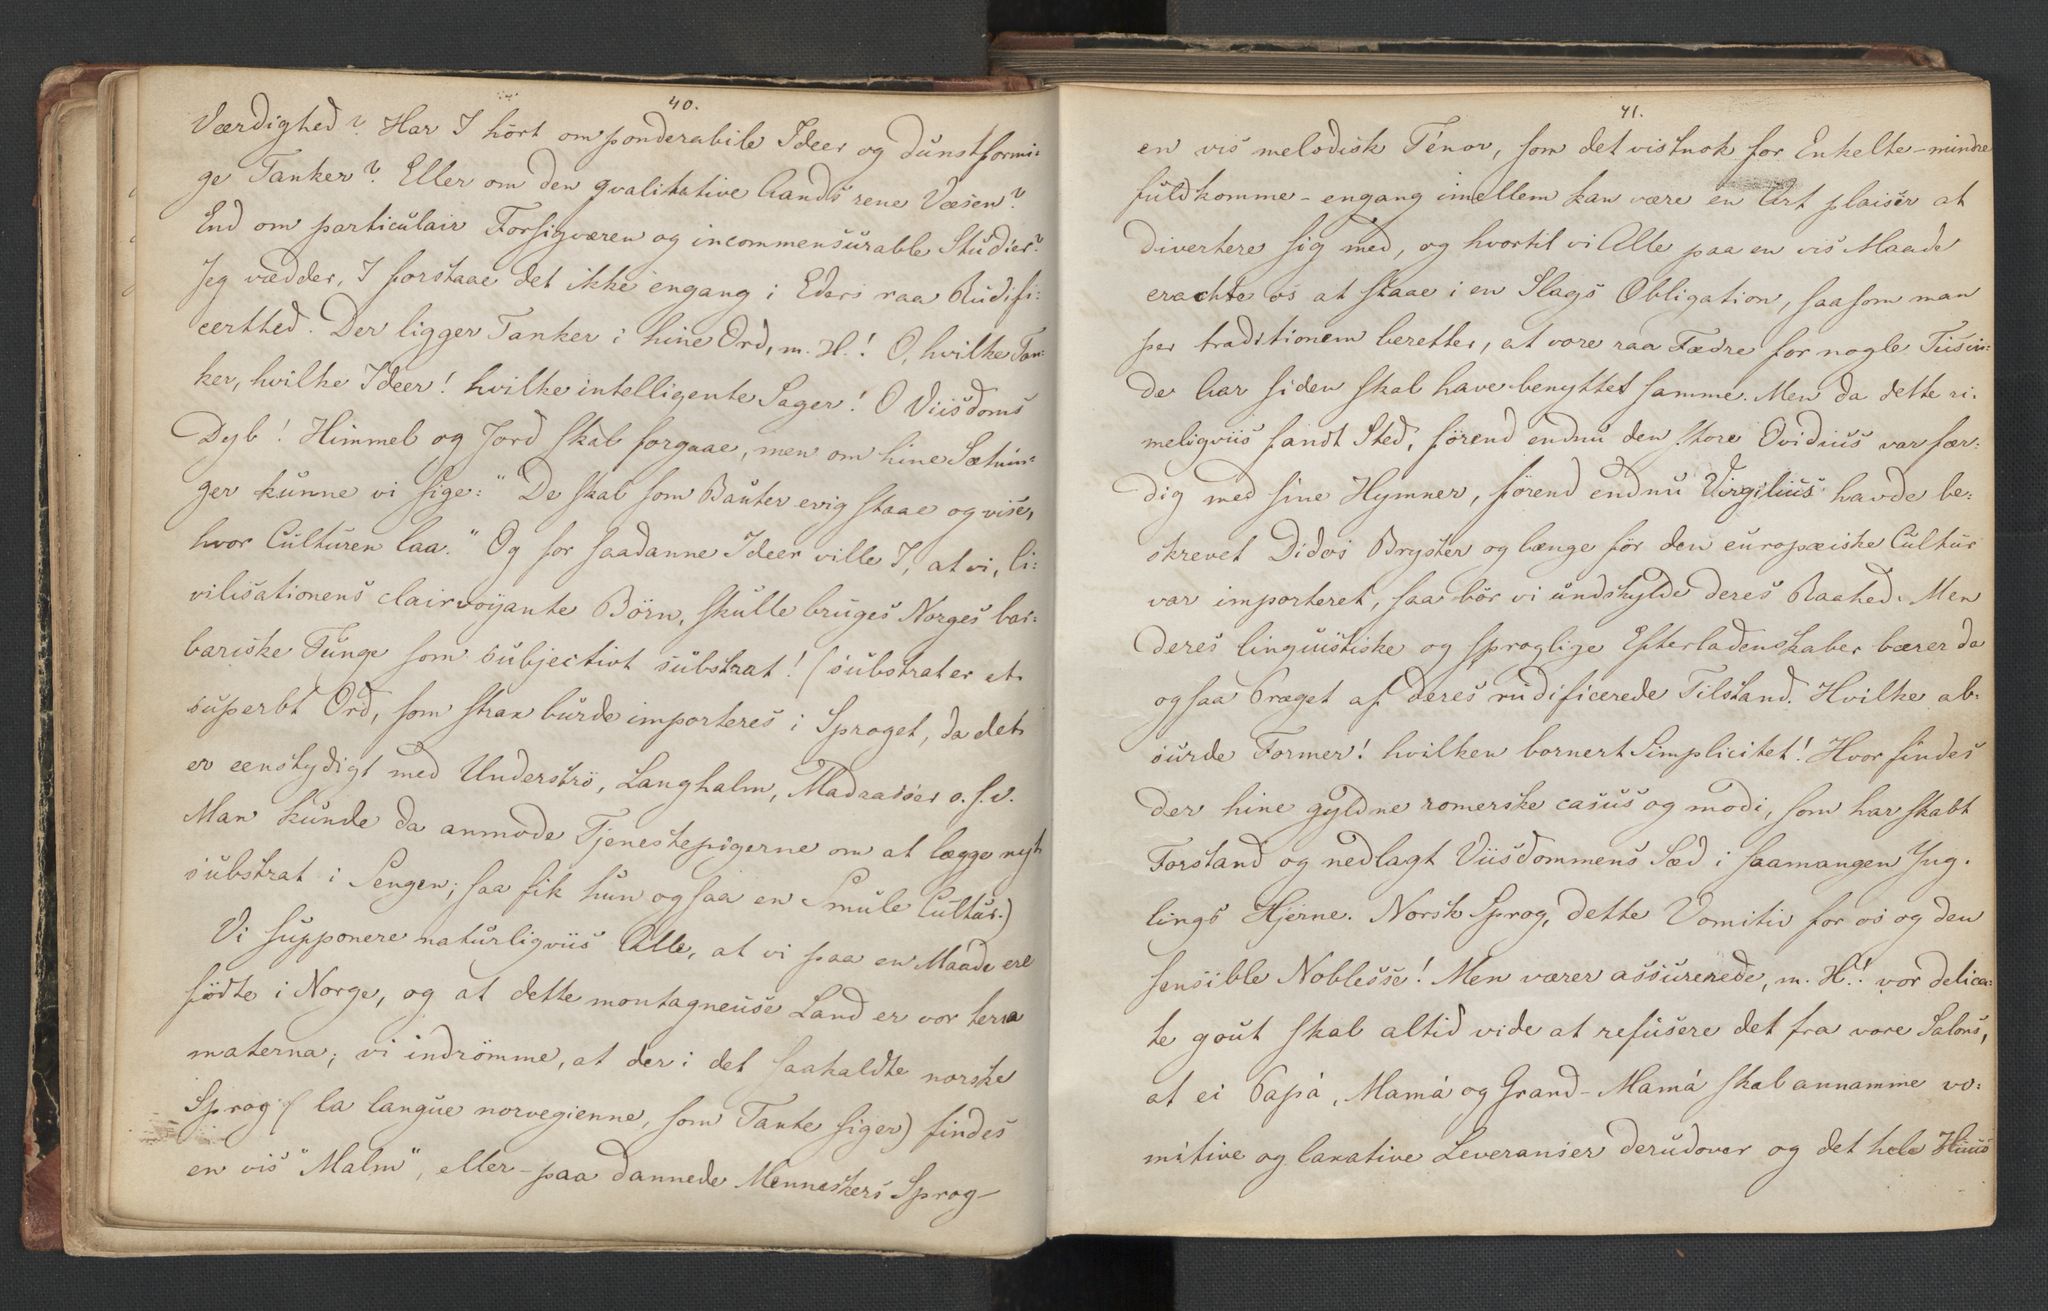 40.
Værdighed? Har I hört om ponderabile Ideer og dunstformi:
ge Tanker? Eller om den qvalitative Aands rene Væsen?
End om particulair Forsigværen og incommensurable Studier?
Jeg vædder, I forstaae det ikke engang i Eders raa Rudifi:
certhed. Der ligger Tanker i hine Ord, m. H.! O, hvilke Tan:
ker, hvilke Ideer! hvilke intelligente Sager! O Viisdoms
Dyb! Himmel og Jord skal forgaae, men om hine Sætnin:
ger kunne vi sige: "De skal som Bauter evig staae og vise,
hvor Culturen laa." Og for saadanne Ideer ville I, at vi, Ci:
vilisationens clairvoyante Börn, skulle bruges Norges bar:
bariske Tunge som subjectivt substrat! (substrat er et
superbt Ord, som strax burde importeres i Sproget, da det
er eenstydigt med Underströ, Langhalm, Madrasser o. s. v.
Man kunde da anmode Tjenestepigerne om at lægge nyt
substrat i Sengen; saa fik hun ogsaa en Smule Cultur.)
Vi supponere naturligviis Alle, at vi paa en Maade ere
födte i Norge, og at dette montagneuse Land er vor terra
materna; vi indrömme, at der i det saakaldte norske
Sprog (la langue norvegienne, som Tante siger) findes
en vis "Malm", eller - paa dannede Menneskers Sprog -
41.
en vis melodisk Ténor, som det vistnok for Enkelte - mindre
fuldkomme - engang imellem kan være en Art plaisir at
divertere sig med, og hvortil vi Alle paa en vis Maade
erachte os at staae i en Slags Obligation, saasom man
per traditionem beretter, at vore raa Fædre for nogle Tusin:
de Aar siden skal have benyttet samme. Men da dette ri:
meligviis fandt Sted, förend endnu den store Ovidius var fær:
dig med sine Hymner, förend endnu Virgilius havde be:
skrevet Didos Bryster og længe för den europæiske Cultur
var importeret, saa bör vi undskylde deres Raahed. Men
deres linguistiske og sproglige Efterladenskaber bærer da
ogsaa Præget af deres rudificerede Tilstand. Hvilke ab:
surde Former! hvilken bornert Simplicitet! Hvor findes
der hine gyldne romerske casus og modi, som har skabt
Forstand og nedlagt Viisdommens Sæd i saamangen Yng:
lings Hjerne. Norsk Sprog, dette Vomitiv for os og den
sensible Noblesse! Men værer assurerede, m. H.! vor delica:
te gout skal altid vide at refusere det fra vore Salons,
at ei Papá, Mamá og Grand-Mamá skal annamme vo:
mitive og laxative Leveranser derudover og det hele Huus